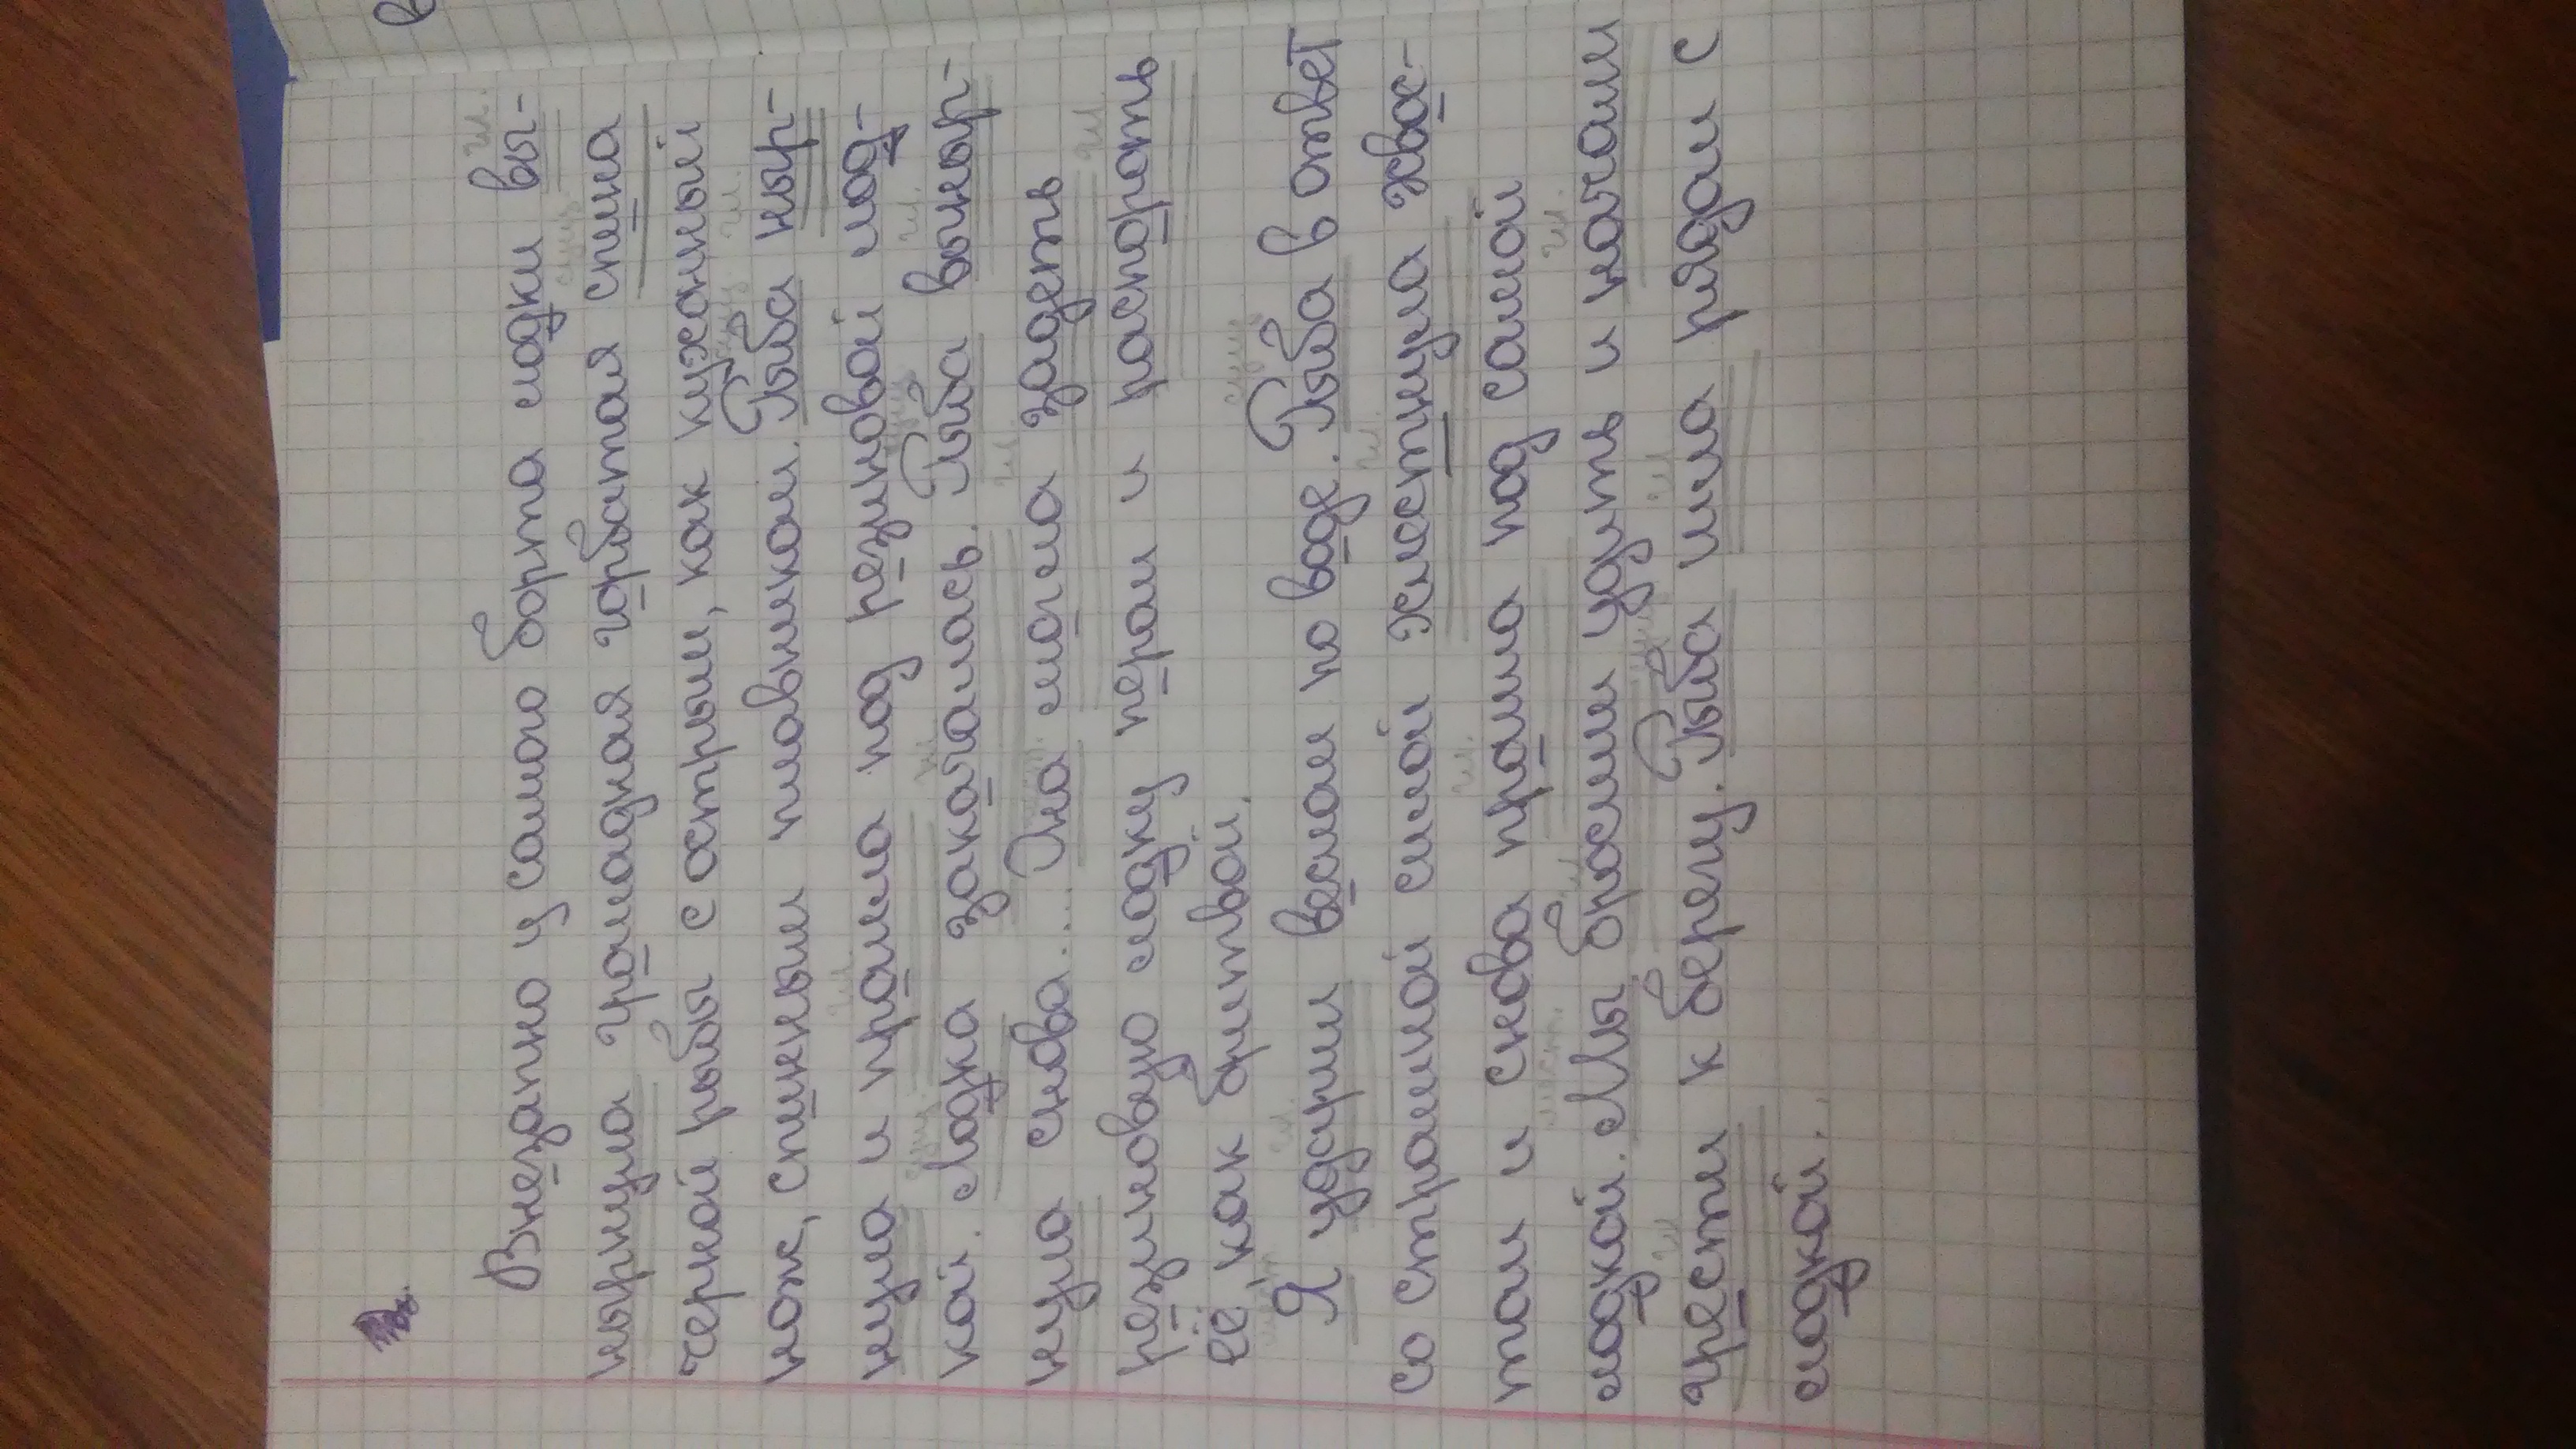 Внезапно у самого борта лодки вы-
нырнула громадная горбатая спина
черной рыбы с острым, как кухонный
нож, спинным плавником. Рыба ныр-
нула и прошла под резиновой лод-
кой. Лодка закачалась. Рыба выныр-
нула снова... Она могла задеть
резиновую лодку пером и распороть
её как бритвой.
Я ударил веслом по воде. Рыба в ответ
со страшной силой хлестнула хвос-
том и снова прошла под самой
лодкой. Мы бросили удить и начали
грести к берегу. Рыба шла рядом с
лодкой.